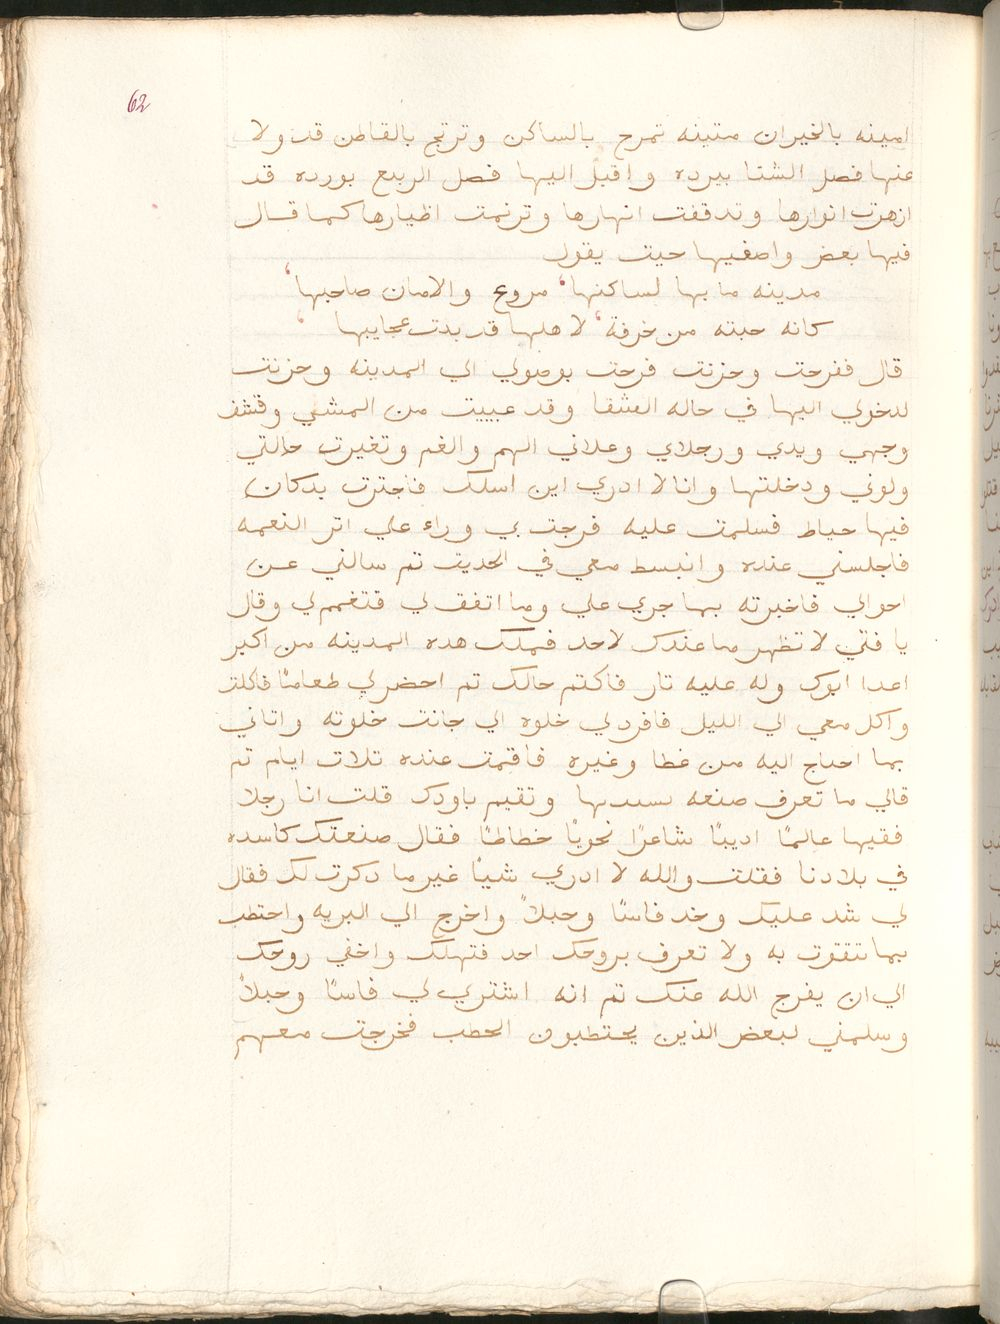 62
امينه بالخيران متينه تمرح بالساكن وترتج بالقاطن قد ولا
عنها فصل الشتا ببرده واقبل اليها فصل الربيع بورده قد
ازهرت انوارها وتدفقت انهارها وترنمت اطيارها كما قال
فيها بعض واصفيها حيت يقول
مدينه ما بها لساكنها، مروع والامان صاحبها،
كانه حبته من خرفة، لاهلها قد بدت عجايبها،
قال ففرحت وحزنت فرحت بوصولي الي المدينه وحزنت
لدخولي اليها في حاله الشقا وقد عييت من المشي وقشف
وجهي ويدي ورجلاي وعلاني الهم والغم وتغيرت حالتي
ولوني ودخلتها وانا لا ادري اين اسلك فاجتزت بدكان
فيها حياط فسلمت عليه فرجت بي وراء علي اتر النعمه
فاجلسني عنده وانبسط معي في الحديت تم سالني عن
احوالي فاخبرته بما جري علي وما اتفق لي فتغمم لي وقال
يا فتي لا تظهر ما عندك لاحد فملك هده المدينه من اكبر
اعدا ابوك وله عليه تار فاكتم حالك تم احضر لي طعامًا فاكلت
واكل معي الي الليل فافرد لي خلوه الي جانت خلوته واتاني
بما احتاج اليه من غطا وغيره فاقمت عنده تلات ايام تم
قالي ما تعرف صنعه بها وتقيم باودك قلت انا رجلا
فقيها عالمًا اديبًا شاعرًا نحويًا خطاطًا فقال صنعتك كاسده
في بلادنا فقلت والله لا ادري شيًا غير ما دكرت لك فقال
لي شد عليك وخد فاسًا وحبلاً واخرج الي البريه واحتطب
بما تتقوت به ولا تعرف بروحك احد فتهلك واخفي روحك
الي ان يفرج الله عنك تم انه اشتري لي فاسًا وحبلاً
وسلمني لبعض الذين يحتطبون الحطب فخرجت معهم